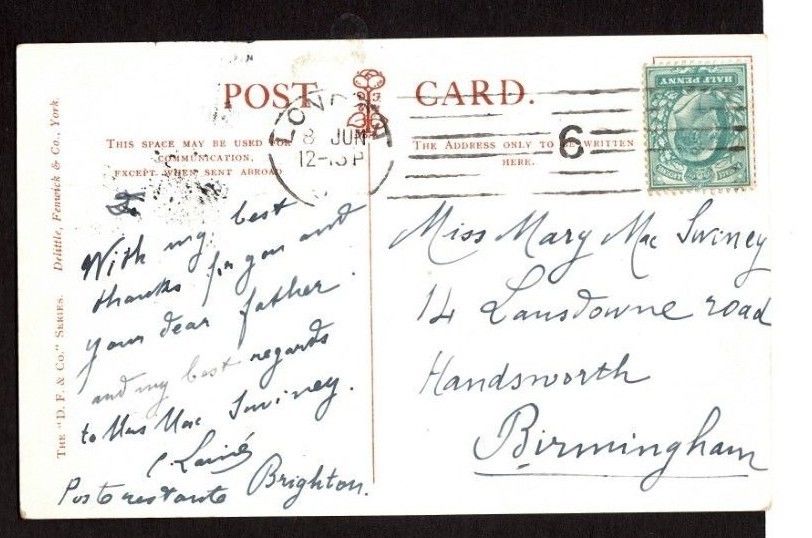 POST CARD.
THIS SPACE MAY BE USED FOR
COMMUNICATION,
EXCEPT WHEN SENT ABROAD
THE ADDRESS ONLY TO BE WRITTEN
HERE.
THE "D. F. & CO." SERIES. Delittle, Fenwick & Co., York.
LONDON
8 JUN
12-15P
6
HALF PENNY
With my best
thanks for you and
your dear father.
and my best regards
to Mrs Mac Swiney.
Poste restante Brighton.
Miss Mary Mac Swiney
14 Lansdowne road
Handsworth
Birmingham